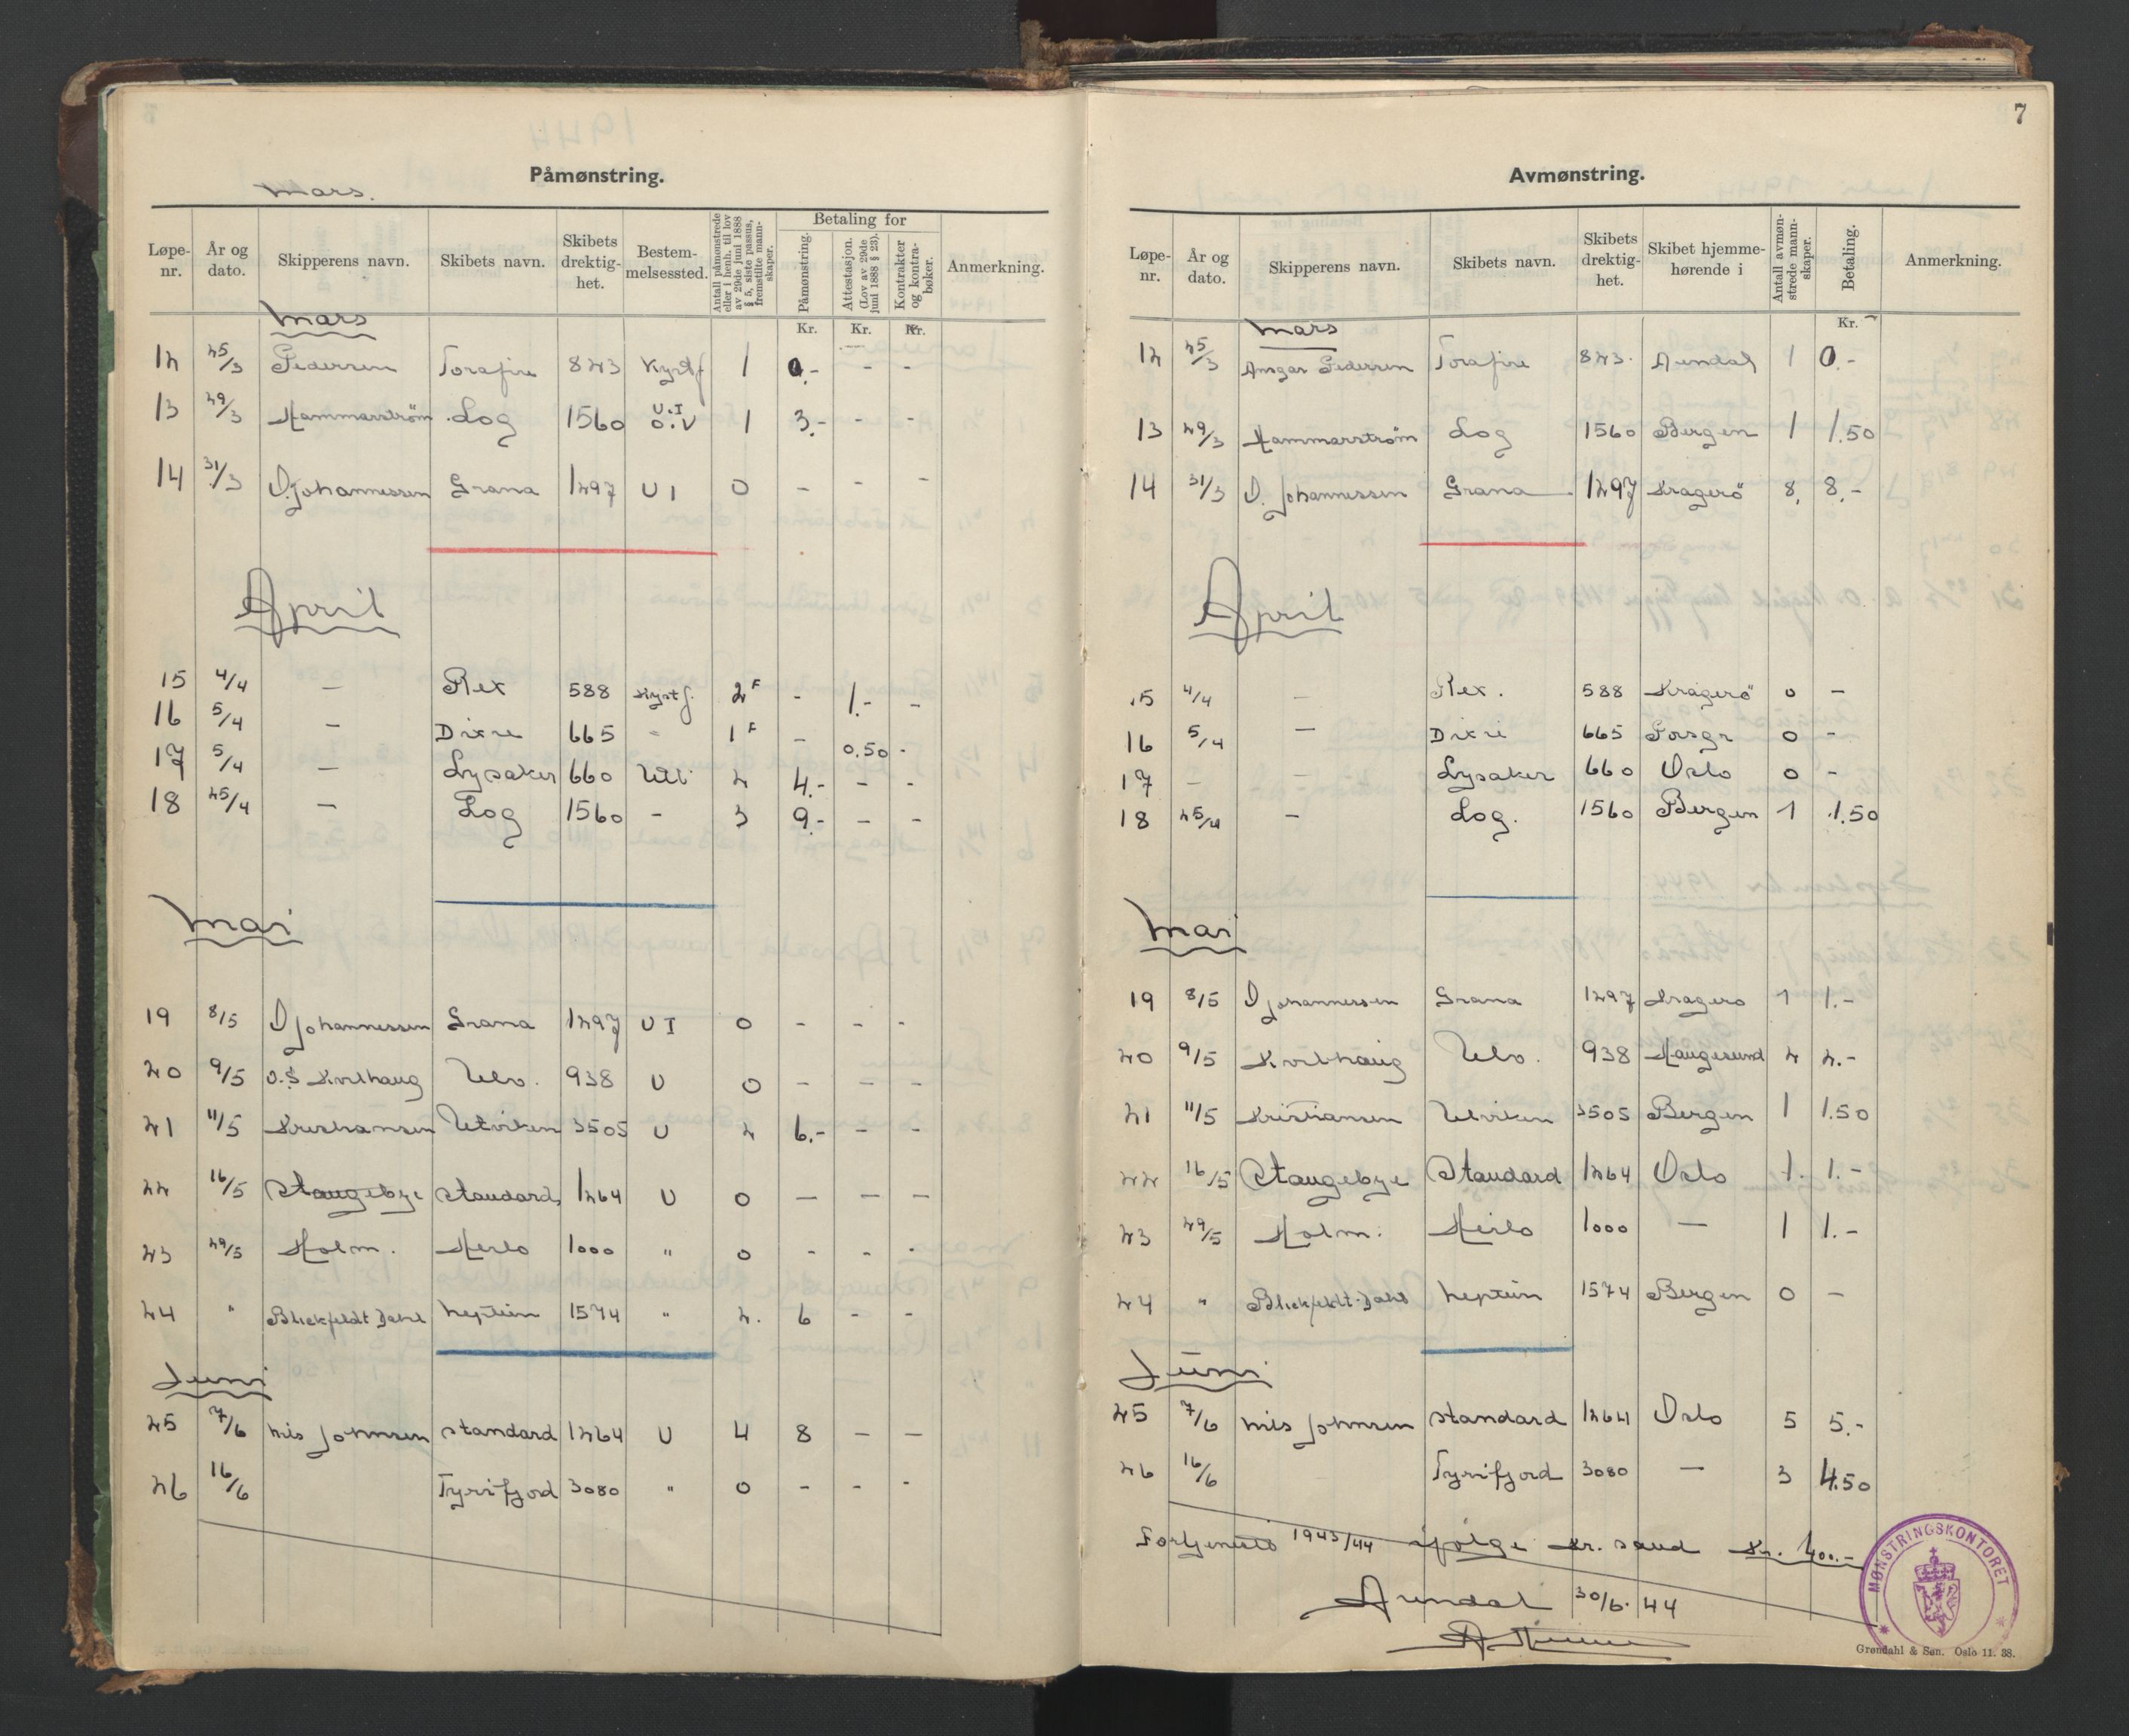 Påmønstring.
Mars.
Løpenr. | År og dato. | Skipperens navn. | Skibets navn. | Skibets drektighet. | Bestemmelsessted. | Antall påmønstrede eller i henh. til lov av 29de juni 1888 § 5, siste passus, fremstilte mannskaper. | Betaling for | Påmønstring. | Attestasjon. (Lov av 29de juni 1888 § 23). | Kontrakter og kontrabøker. | Anmerkning.
Kr. Kr. Kr.
Mars
12 25/3 Pedersen Torafire 823 Kystf 1 0.- - -
13 29/3 Hammarstrøm Log 1560 U.I O.V 1 3.- - -
14 31/3 D. Johannessen Grana 1297 U I 0 - - -
April
15 4/4 - Rex 588 Kystf. 2 F - 1.- -
16 5/4 - Dixie 665 " 1 F - 0.50 -
17 5/4 - Lysaker 660 Utl 2 4.- - -
18 25/4 - Log 1560 - 3 9.- - -
Mai
19 8/5 D Johannessen Grana 1297 U I 0 - - -
20 9/5 O.S Kvilhaug Ulv. 938 U 0 - - -
21 11/5 Kristiansen Utviken 3505 U 2 6.- - -
22 16/5 Staugebye Standard 1264 U 0 - - -
23 29/5 Holm. Herlo 1000 " 0 - - -
24 " Blickfeldt Dahl Neptun 1574 " 2. 6 - -
Juni
25 7/6 Nils Johnsen Standard 1264 U 4 8 - -
26 16/6 Tyrifjord 3080 " 0 - - -
7
Avmønstring.
Løpenr. | År og dato. | Skipperens navn. | Skibets navn. | Skibets drektighet. | Skibet hjemmehørende i | Antall avmønstrede mannskaper. | Betaling. | Anmerkning.
Kr.
Mars
12 25/3 Ansgar Pedersen Torafire 823. Arendal 1 0.-
13 29/3 Hammarstrøm Log 1560 Bergen 1 1.50
14 31/3 D. Johannessen Grana 1297 Kragerö 8, 8.-
April
15 4/4 - Rex. 588 Kragerö 0 -
16 5/4 - Dixie 665 Porsgr 0 -
17 - - Lysaker 660 Oslo 0 -
18 25/4 - Log. 1560 Bergen 1 1.50
Mai
19 8/5 D Johannessen Grana 1297 Kragero 1 1.-
20 9/5 Kvilhaug Ulv. 938 Haugesund 2 2.-
21 11/5 Kristiansen Utviken 3505 Bergen 1 1.50
22 16/5 Staugebye Standard 1264 Oslo 1. 1.-
23 29/5 Holm. Herlo 1000 - 1 1.-
24 " Blickfeldt-Dahl Neptun 1574 Bergen 0 -
Juni
25 7/6 Nils Johnsen Standard 1264 Oslo 5 5.-
26 16/6 Tyrifjord 3080 - 3 4.50
Fortjeneste 1943/44 ifølge Kr. sand Kr. 400.-
Arendal 30/6. 44
MØNSTRINGSKONTORET
Grøndahl & Søn. Oslo 11. 38.